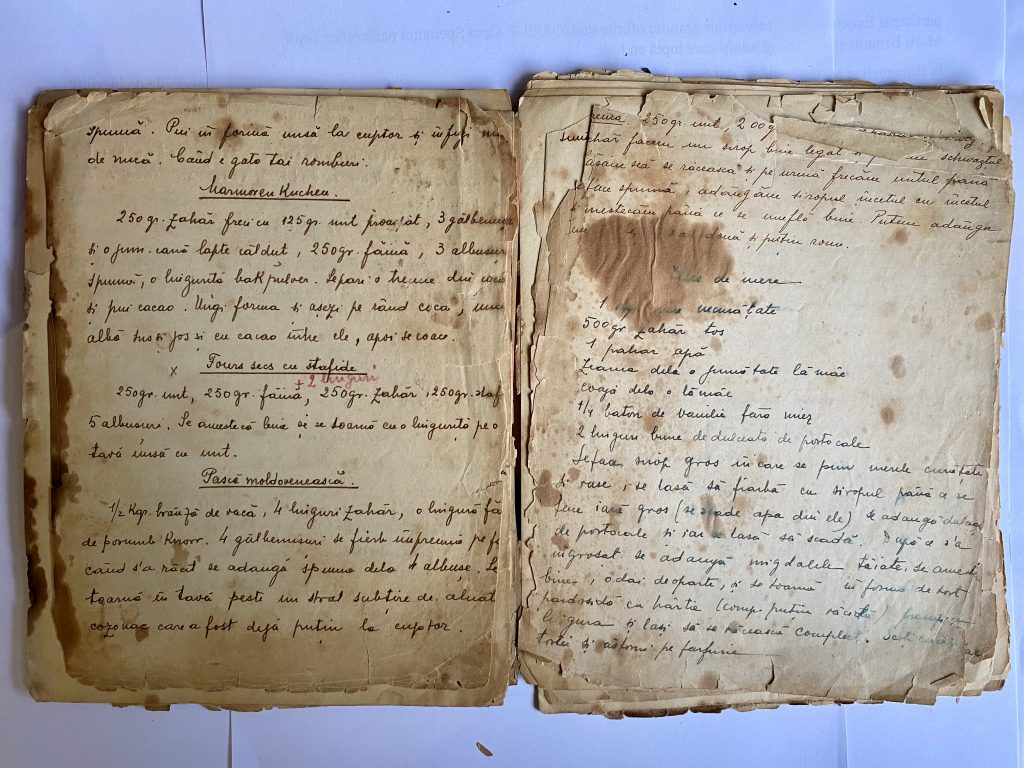 spumă. Pui in formă unsă la cuptor și înfigi
de nucă. Când e gata tai romburi.
Marmoren Kuchen.
250 gr. zahăr freci cu 125 gr. unt proaspăt, 3 gălbenuș
și o jum. cană lapte călduț, 250 gr. făină, 3 albușuri
spumă, o linguriță bakpulver. Separi o treime din coca
și pui cacao. Ungi forma și așezi pe rând coca, una
albă sus și jos și cu cacao între ele, apoi se coace.
x Fours secs cu stafide
+ 2 linguri
250 gr. unt, 250 gr. făină, 250 gr. zahăr, 250 gr. staf
5 albușuri. Se amestecă bine și se toarnă cu o linguriță pe o
tavă unsă cu unt.
Pască moldovenească.
1/2 Kgr. brânză de vacă, 4 linguri zahăr, o lingură fă
de porumb Knorr. 4 gălbenușuri se fierb împreună pe fo
când s'a răcit se adaugă spuma dela 4 albușe. Se
toarnă în tavă peste un strat subțire de aluat
cozonac care a fost dejà puțin la cuptor.
250 gr. unt, 200 g
zahăr facem un sirop bine legat și schwarztul
lăsăm să se răcească și pe urmă frecăm untul până
se face spumă, adăugăm siropul încetul cu încetul
și mestecăm până ce se umflă bine. Putem adăuga
și puțin rom.
de mere
1 mere curățate
500 gr zahăr tos
1 pahar apă
Zeama dela o jumătate lămâie
coajă dela o lămâie
1/4 baton de vanilie fără miez
2 linguri bune de dulceață de portocale
Se face sirop gros în care se pun merele curățate
și rase, se lasă să fiarbă cu siropul până ce se
face iară gros (se scade apa din ele) se adaugă dulceaț
de portocale și iar se lasă să scadă. După ce s'a
îngroșat se adaugă migdalele tăiate, se amestecă
bine, o dai deoparte, și se toarnă în formă de tort
pardosită cu hârtie (comp. puțin răcită)
lingura și lași să se răcească complect.
tortei și răstorni pe farfurie